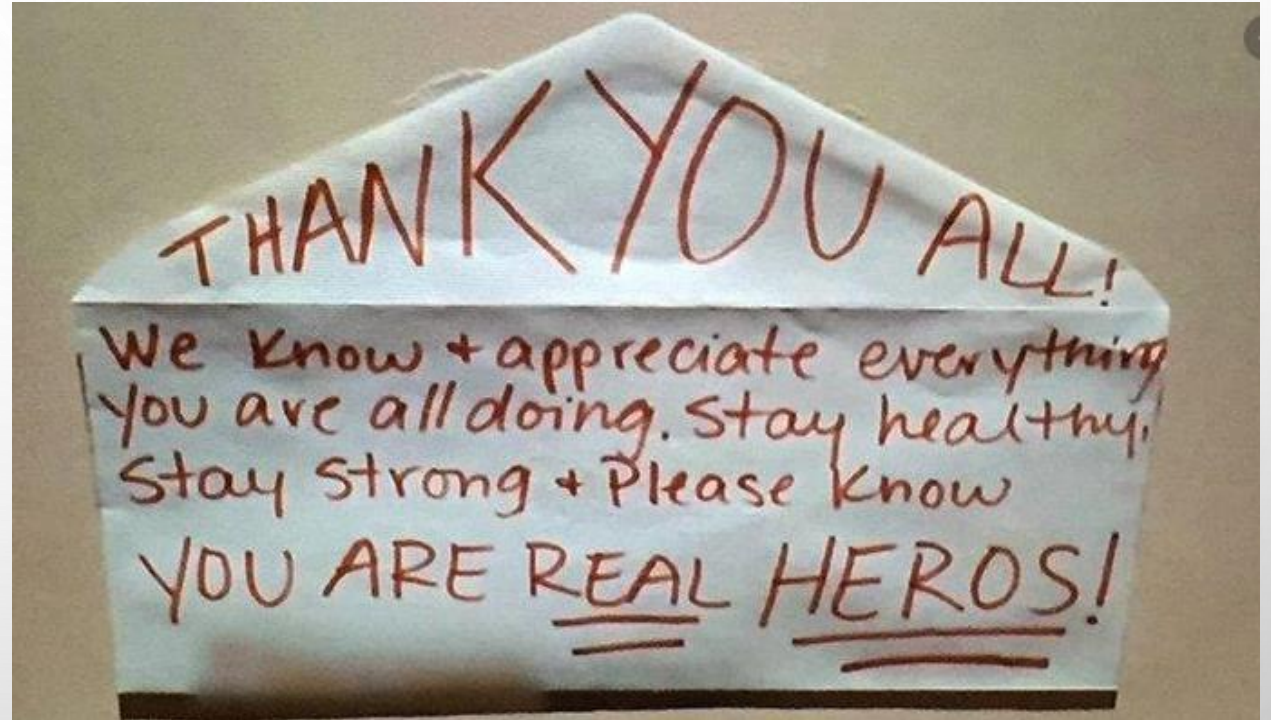 THANK YOU ALL!
We know + appreciate everything
you are all doing. Stay healthy,
Stay Strong + Please Know
YOU ARE REAL HEROS!